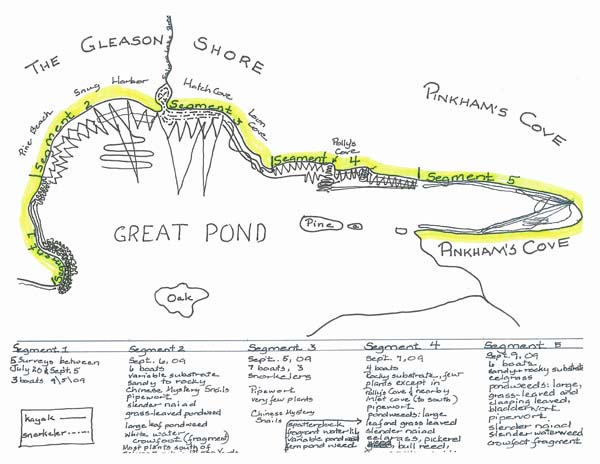 THE GLEASON SHORE
Pine Beach
Snug Harbor
Hatch Cove
Loon Cove
Polly's Cove
PINKHAM'S COVE
Segment 2
Segment 3
Segment 4
Segment 5
GREAT POND
Pine
PINKHAM'S COVE
Oak
Segment 1
5 Surveys between
July 20 & Sept 5
3 boats 9/5/09
kayak
snorkeler
Segment 2
Sept. 6, 09
6 boats
variable substrate
sandy to rocky
Chinese Mystery Snails
pipewort
slender naiad
grass-leaved pondweed
large leaf pondweed
White water
crowfoot (fragment)
Most plants south of
Segment 3
Sept. 5, 09
7 boats, 3
snorkelers
Pipewort
very few plants
Chinese Mystery
Snails
spatterdock
fragrant water lily
variable pond weed
fern pond weed
Segment 4
Sept. 7, 09
4 boats
Rocky substrate, few
plants except in
Polly's Cove & nearby
inlet cove (to south)
pipewort
pondweeds: large
leaf and grass leaved
slender naiad
eelgrass, pickerel
bull reed,
Segment 5
Sept. 9, 09
6 boats
sandy & rocky substrate
eelgrass
pondweeds: large,
grass-leaved and
clasping leaved,
bladderwort
pipewort
slender naiad
slender waterweed
crowfoot fragment